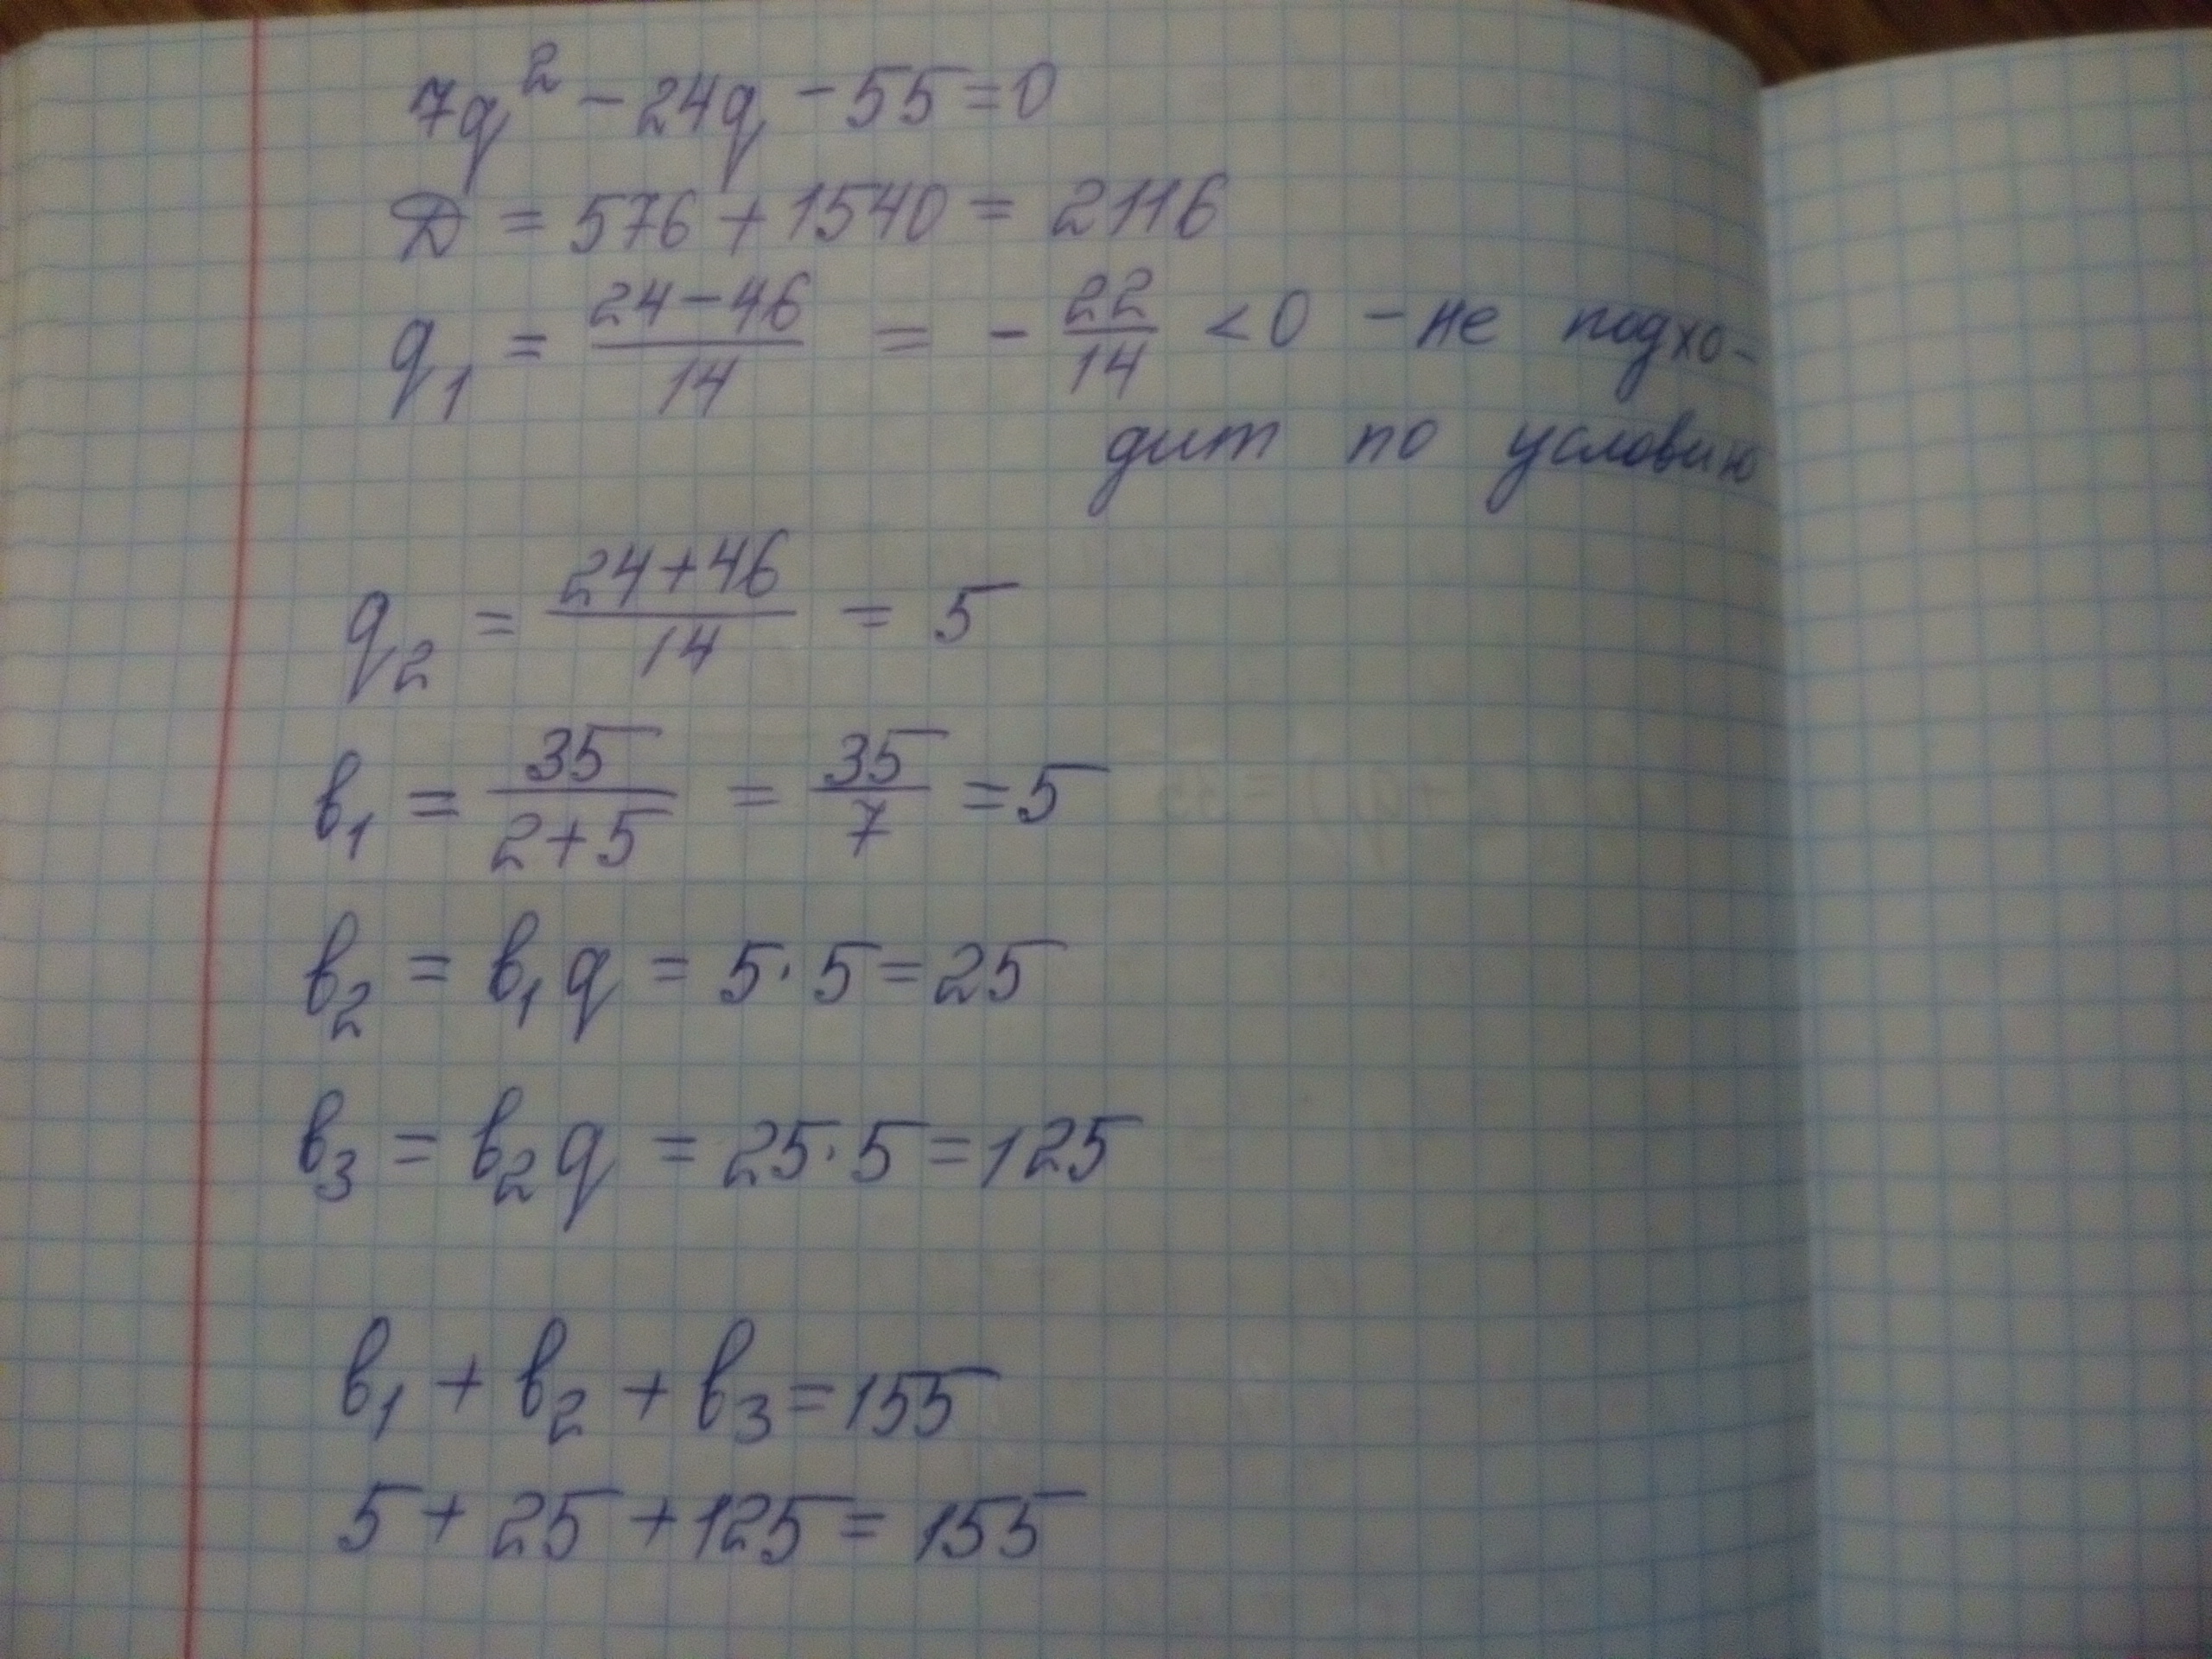 7q² - 24q - 55 = 0
D = 576 + 1540 = 2116
q₁ = (24 - 46)/14 = - 22/14 < 0 - не подхо-
дит по условию
q₂ = (24 + 46)/14 = 5
b₁ = 35/(2 + 5) = 35/7 = 5
b₂ = b₁q = 5 · 5 = 25
b₃ = b₂q = 25 · 5 = 125
b₁ + b₂ + b₃ = 155
5 + 25 + 125 = 155